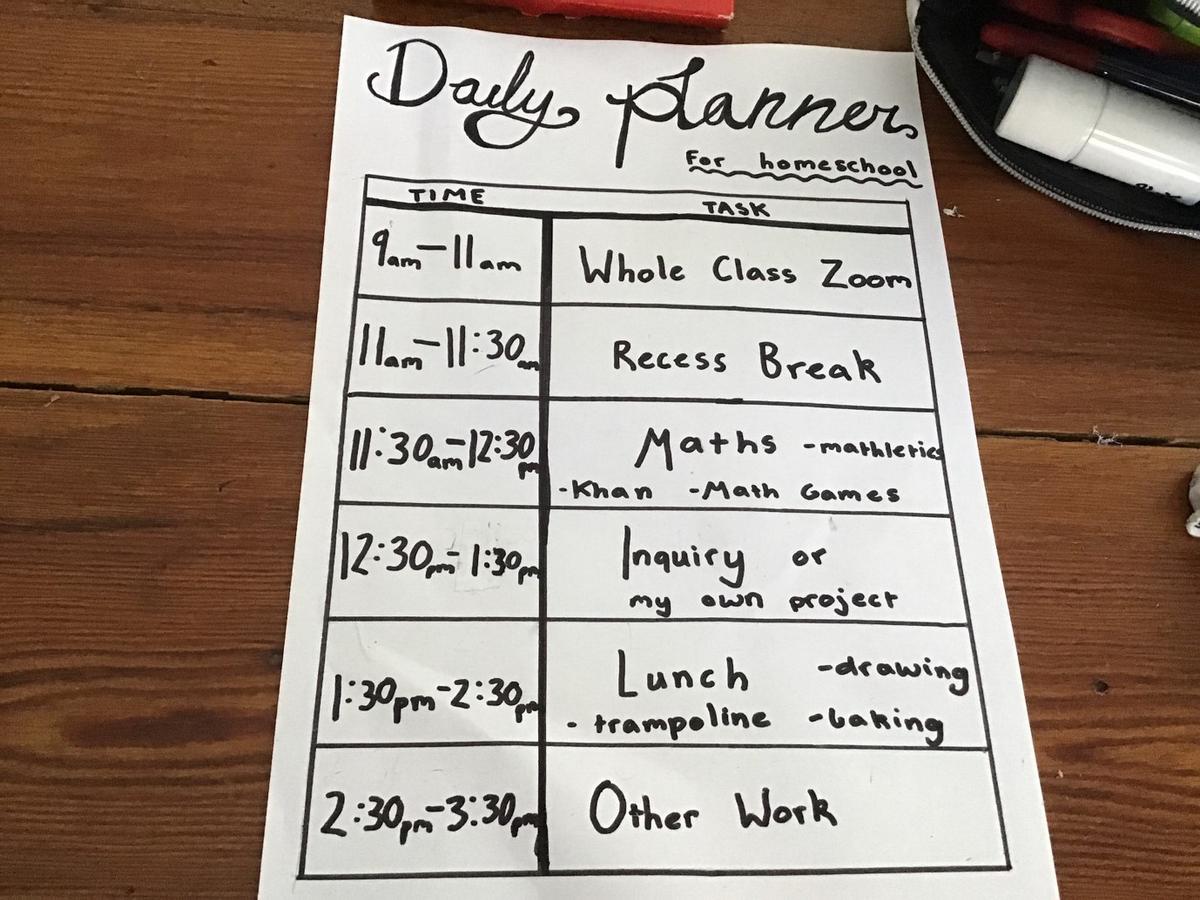 Daily planner
For homeschool
TIME TASK
9am-11am Whole Class Zoom
11am-11:30am Recess Break
11:30am-12:30pm Maths -mathletics
-Khan -Math Games
12:30pm-1:30pm Inquiry or
my own project
1:30pm-2:30pm Lunch -drawing
- trampoline -baking
2:30pm-3:30pm Other Work